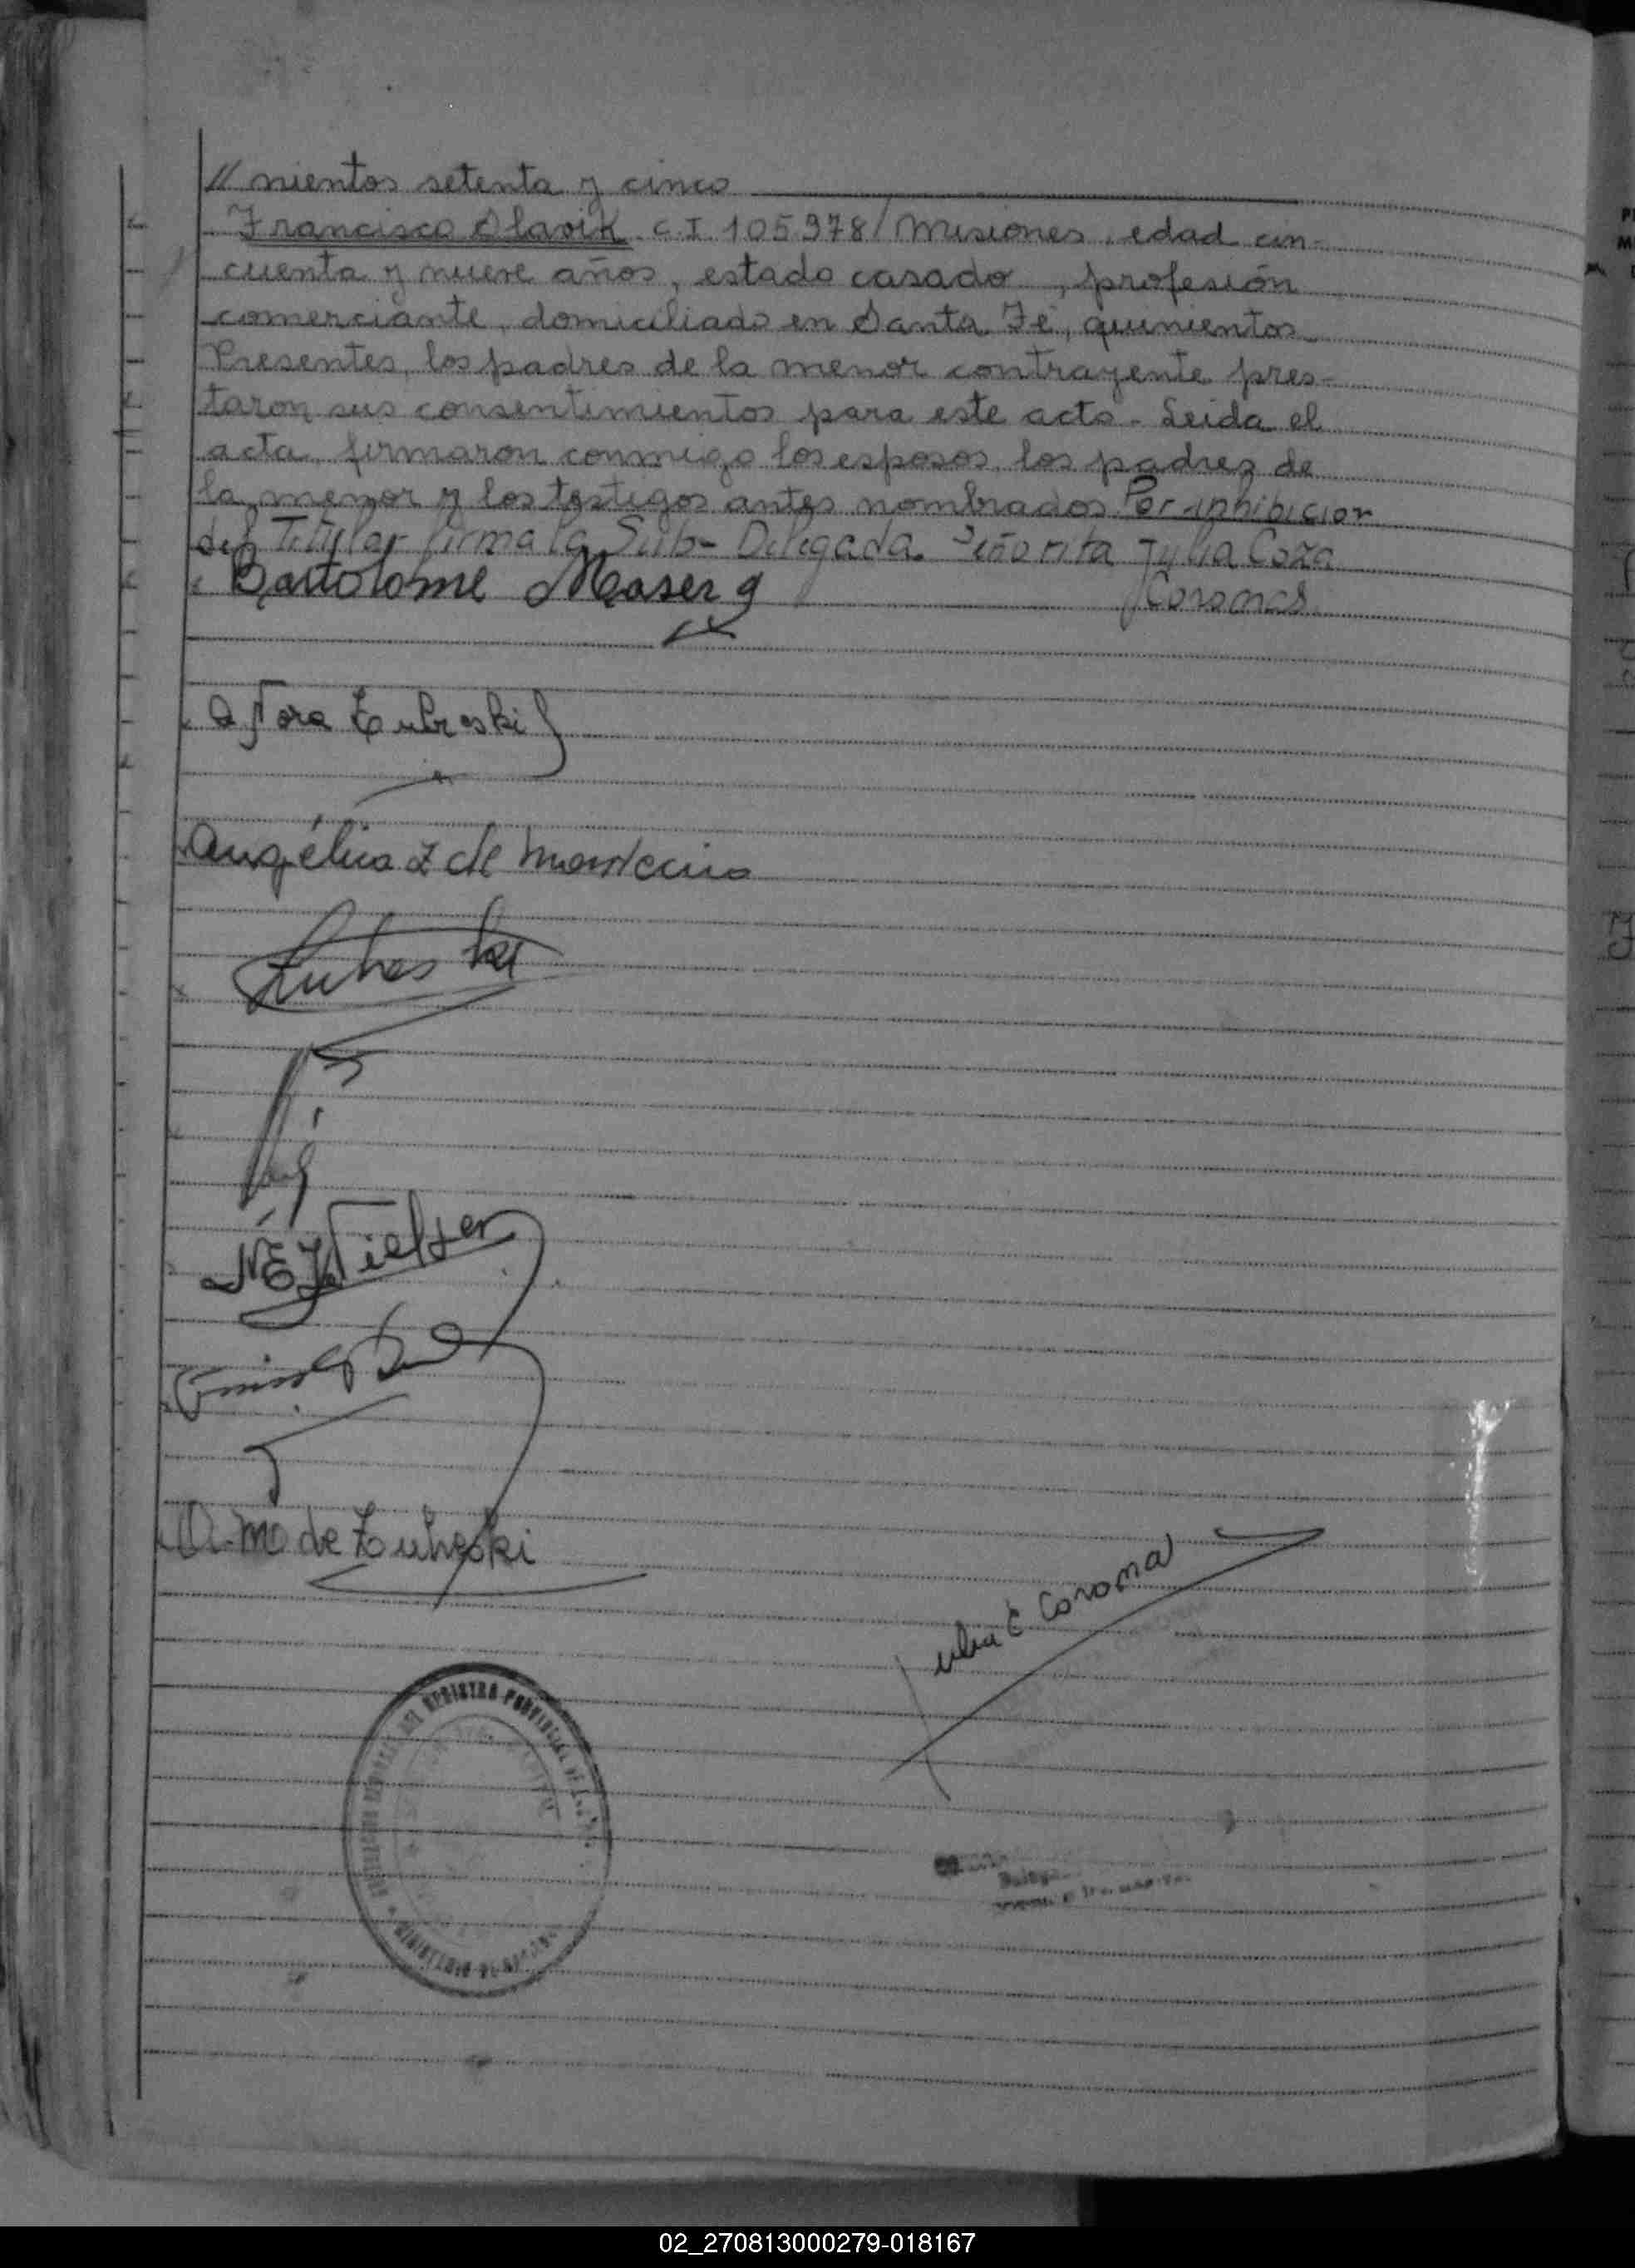 // nientos setenta y cinco
Francisco Slavik. C.I. 105.978/ Misiones, edad cin-
cuenta y nueve años, estado casado, profesión
comerciante, domiciliado en Santa Fé, quinientos
Presentes, los padres de la menor contrayente pres-
taron sus consentimientos para este acto. Leida el
acta, firmaron conmigo los esposos, los padres de
la menor y los testigos antes nombrados. Por inhibicion
del Titular firma la Sub-Delegada Señorita Julia
Coromas
Bartolome
Nora Zubreski
Angélica Z de
Zubreski
N E Nielsen
A. M. de Zubreski
Julia C Coroma
REGISTRO PROVINCIAL DE
MINISTERIO
02_270813000279-018167